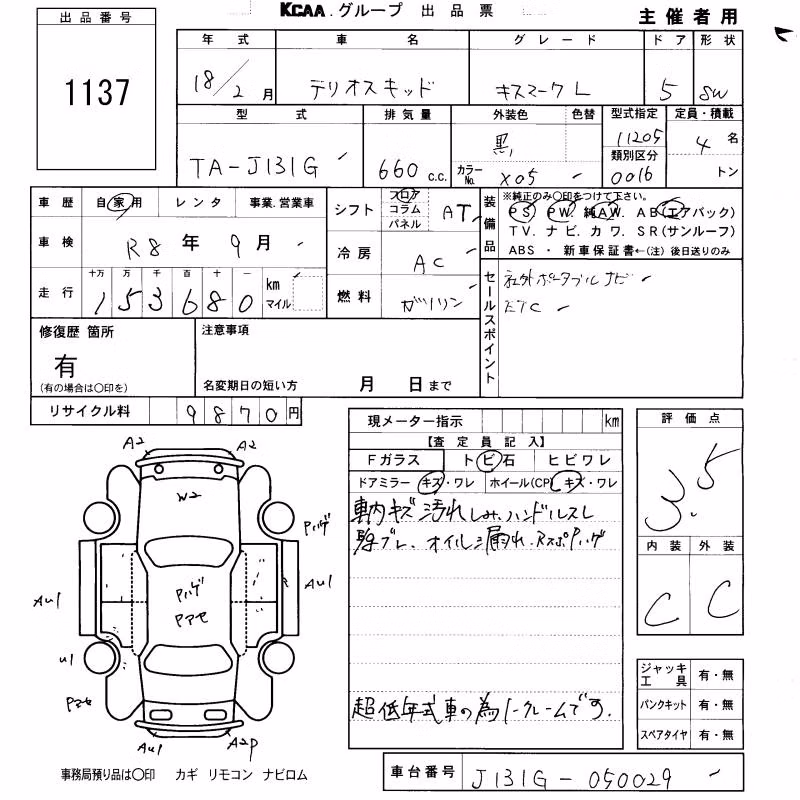 KCAA.グループ 出品票
主催者用
出品番号
1137
年式 車名 グレード ドア 形状
18/2月 テリオスキッド キスマークL 5 SW
型式 排気量 外装色 色替 型式指定 定員・積載
TA-J131G 660c.c. 黒 11205 4名
カラーNo. X05 類別区分 0016 トン
車歴 自家用 レンタ 事業.営業車
シフト フロア コラム パネル AT
車検 R8年9月
冷房 AC
走行 十万 万 千 百 十 一
153680 km マイル
燃料 ガソリン
装備品
※純正のみ〇印をつけて下さい。
PS PW. 純AW. AB(エアバック)
TV. ナビ. カワ. SR(サンルーフ)
ABS ・ 新車保証書←(注) 後日送りのみ
セールスポイント
社外ポータブルナビ
ETC
修復歴 箇所
有
(有の場合は〇印を)
注意事項
名変期日の短い方 月 日まで
リサイクル料 9870円
現メーター指示 km
【査定員記入】
Fガラス トビ石 ヒビワレ
ドアミラー キズ・ワレ ホイール(CP) キズ・ワレ
車内キズ汚れしみ.ハンドルスレ
オイル漏れ.RスポPハゲ
超低年式車の為ノークレームです.
評価点
3.5
内装 外装
C C
ジャッキ 工具 有・無
パンクキット 有・無
スペアタイヤ 有・無
A2 A2
W2
Pハゲ
AU1 Pハゲ R AU1
Pアセ
U1
Pアセ
AU1 A2P
事務局預り品は〇印 カギ リモコン ナビロム
車台番号 J131G-050029